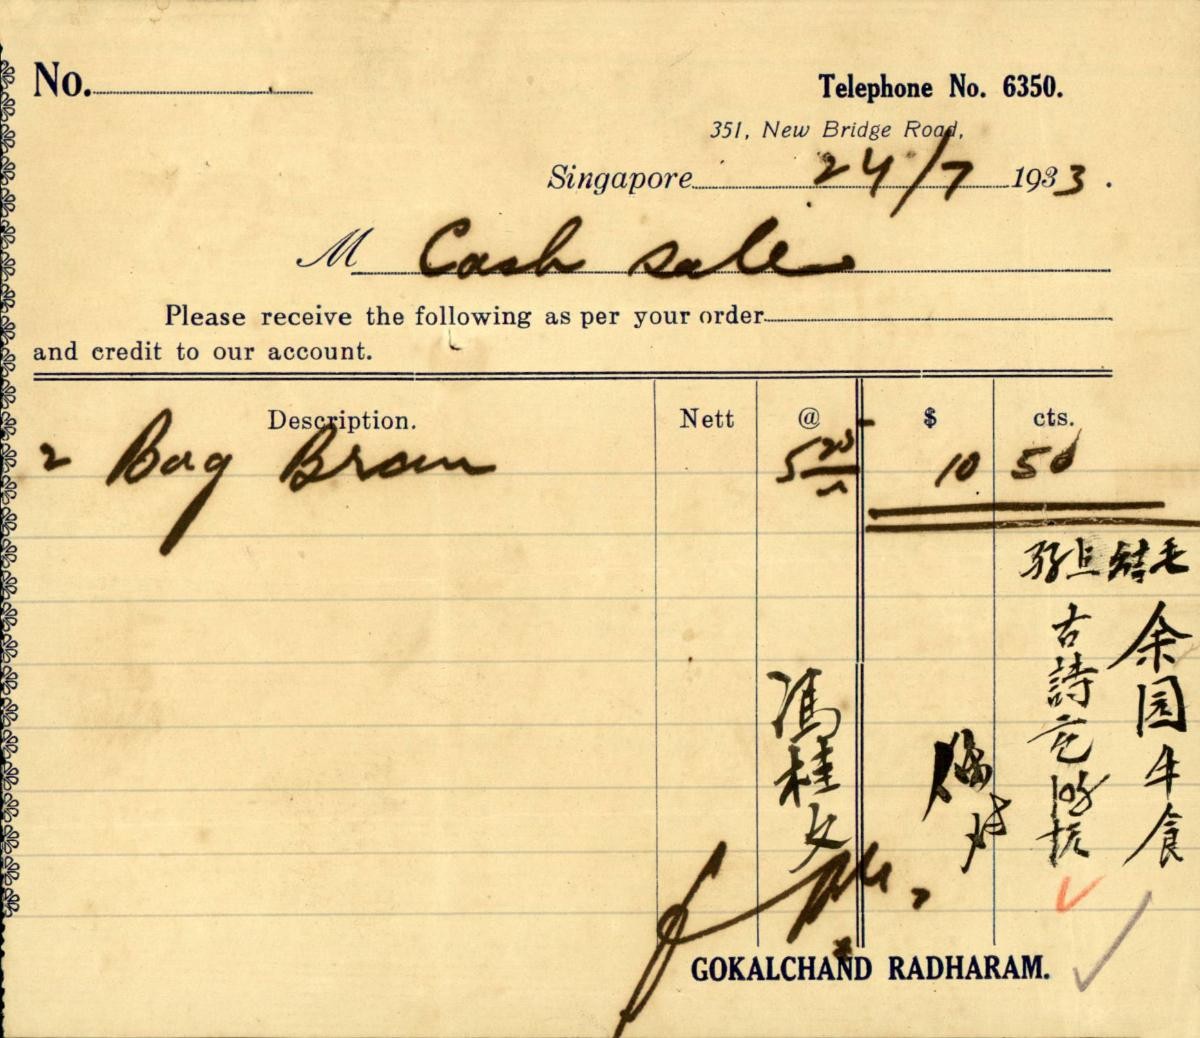 No.
Telephone No. 6350.
351, New Bridge Road,
Singapore 24/7 1933.
M Cash sale
Please receive the following as per your order
and credit to our account.
Description. Nett @ $ cts.
2 Bag Bran 5 25 10 50
余园牛食
古詩
馮桂文
GOKALCHAND RADHARAM.